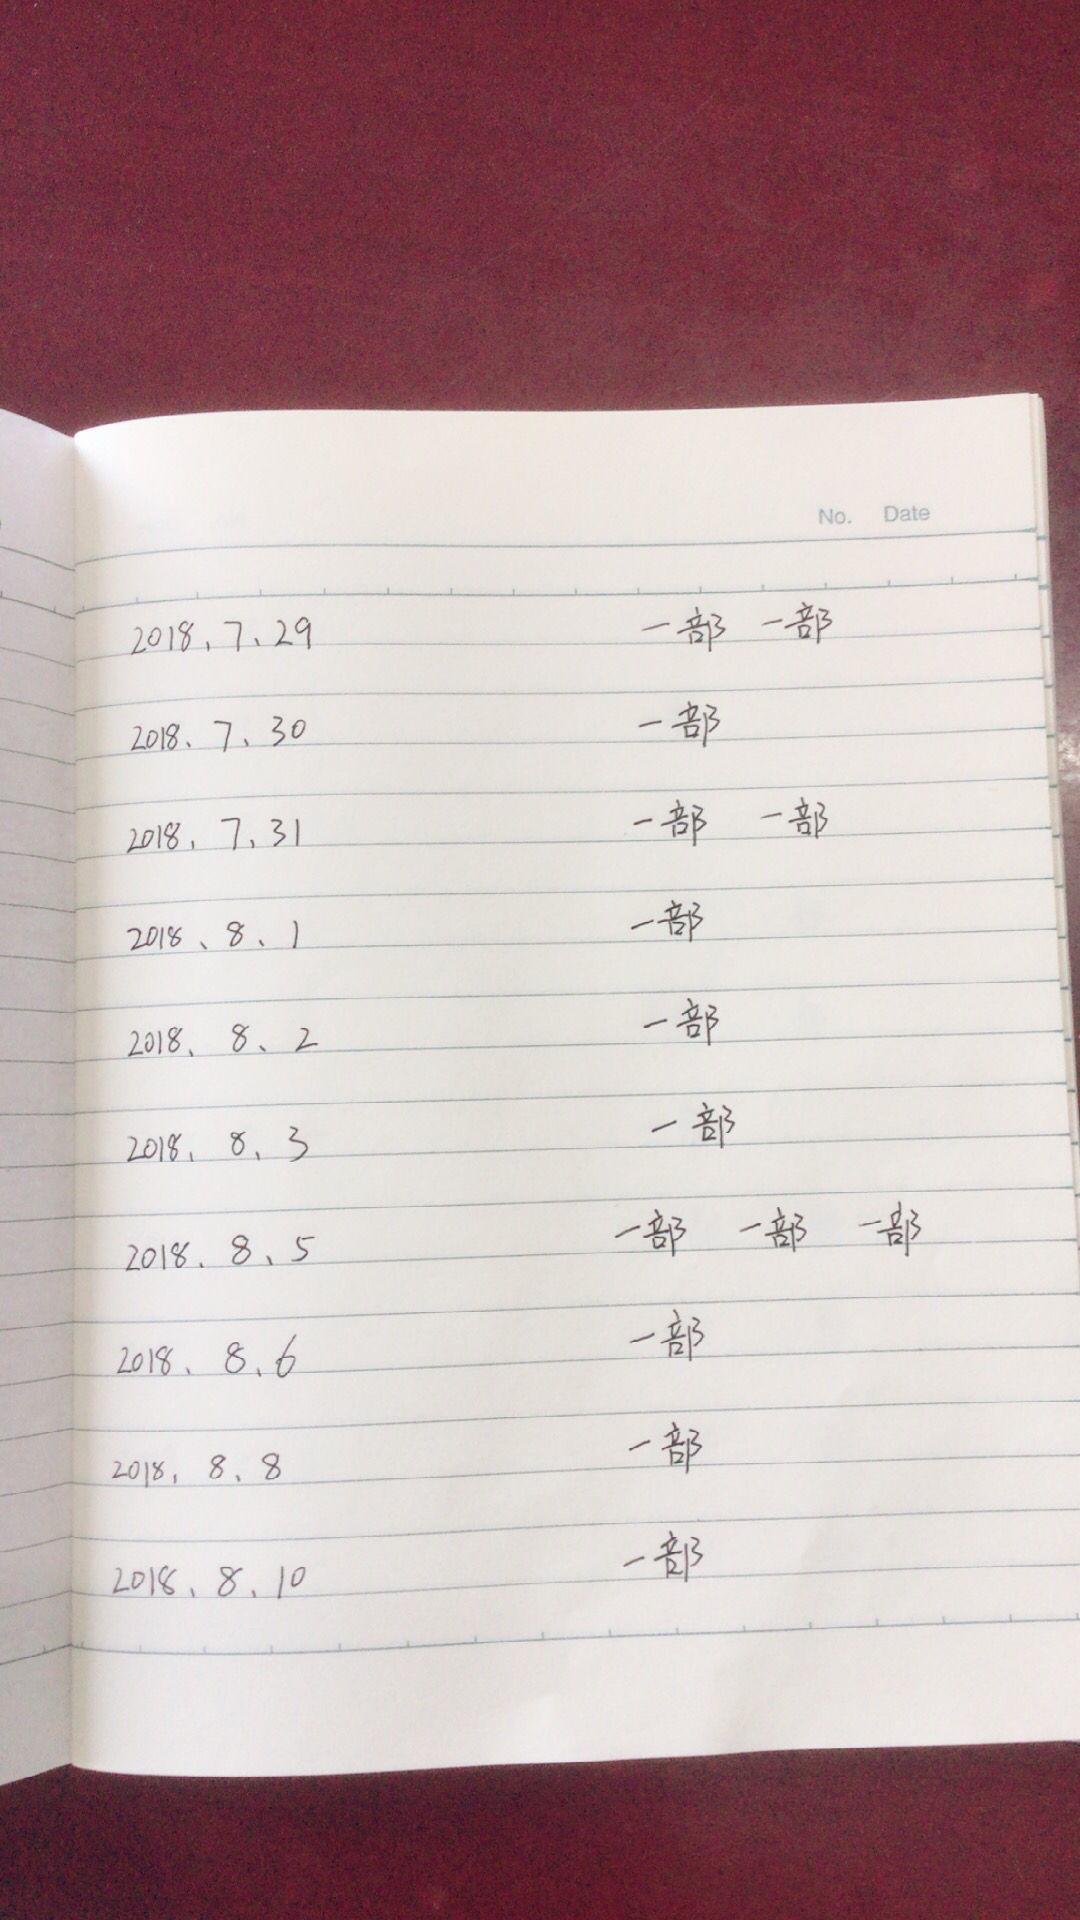 No. Date
2018、7、29 一部 一部
2018、7、30 一部
2018、7、31 一部 一部
2018、8、1 一部
2018、8、2 一部
2018、8、3 一部
2018、8、5 一部 一部 一部
2018、8、6 一部
2018、8、8 一部
2018、8、10 一部